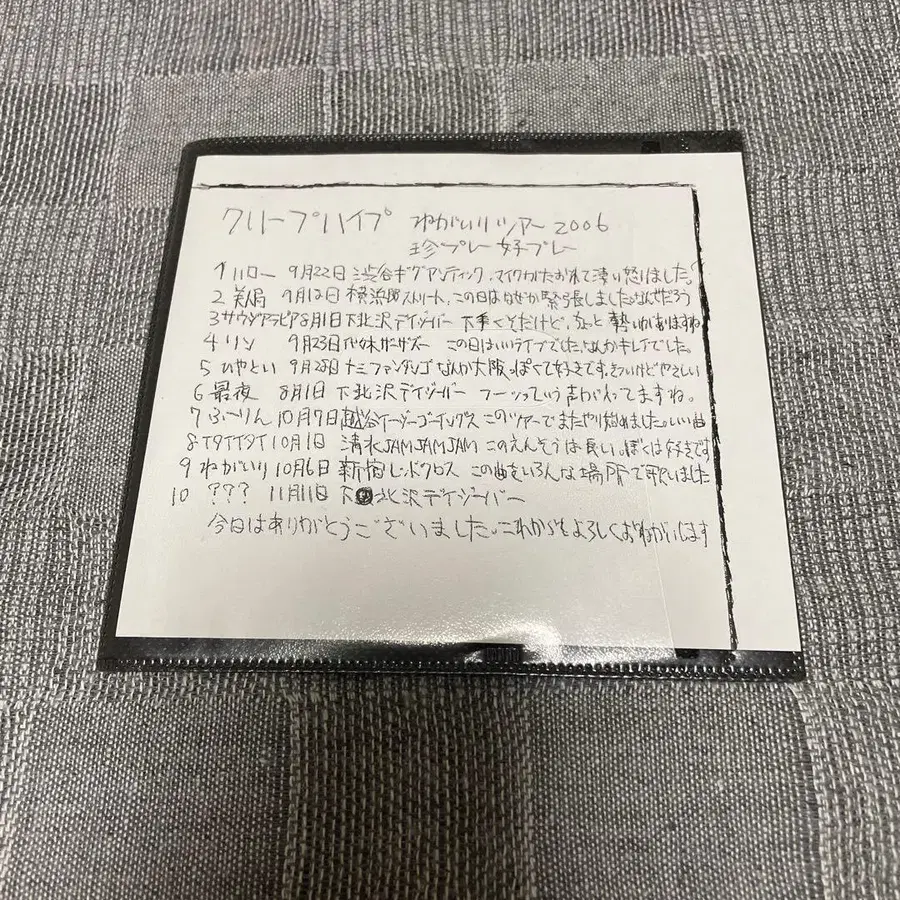 クリープハイプ ねがいりツアー2006
珍プレー好プレー
1 ハロー 9月22日 渋谷ギグアンティック、マイクがたおれて凄い怒りました。
2 美人局 9月12日 横浜 ストリート、この日はなぜか緊張しました。なんでだろう
3 サウジアラビア 8月1日 下北沢デイジーバー 下手くそだけど、ちょっと勢いがありますね
4 リン 9月23日 この日はいいライブでした。なんかキレイでした。
5 ひやとい 9月28日 ナミファンダンゴ なんか大阪っぽくて好きです。きついけどやさしい
6 最夜 8月1日 下北沢デイジーバー フーっていう声が入ってますね。
7 ふーりん 10月7日 越谷イージーゴーイングス このツアーでまたやり始めました。いい曲
8 イタイイタイ 10月1日 清水JAMJAMJAM このえんそうは長い。ぼくは好きです
9 ねがいり 10月6日 新宿レッドクロス この曲をいろんな場所で歌いました
10 ??? 11月11日 下北沢デイジーバー
今日はありがとうございました。これからもよろしくおねがいします